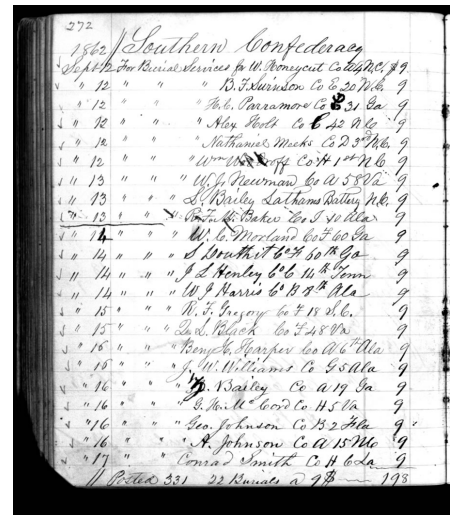 272
1862 // Southern Confederacy
Sept 12 For Burial Services for W. Honeycut Co A 4 N.C. $ 9
" 12 " " " B. F. Co E 20 N.C. 9
" 12 " " " H. C. Parramore Co E 31 Ga 9
" 12 " " " Alex Holt Co C 42 N.C. 9
" 12 " " " Nathaniel Meeks Co D 3rd N.C. 9
" 12 " " " Wm Co H 1st N.C. 9
" 13 " " " W. J. Newman Co A 58 Va 9
" 13 " " " L. Bailey Lathams Battery N.C. 9
" 13 " " Baker Co I 40 Ala 9
" 14 " " " W. C. Morland Co F 60 Ga 9
" 14 " " " S Douthit Co F 60th Ga 9
" 14 " " " J L Henley Co C 14th Tenn 9
" 14 " " " W J Harris Co B 8th Ala 9
" 15 " " " R. F. Gregory Co F 18 S.C. 9
" 15 " " " L. Black Co F 48 Va 9
" 15 " " " Benj. H. Harper Co A 6th Ala 9
" " " " J. W. Williams Co G 5 Ala 9
" 16 " " " Bailey Co A 19 Ga 9
" 16 " " " G. H. McCord Co H 5 Va 9
" 16 " " " Geo. Johnson Co B 2 Fla 9
" 16 " " " A. Johnson Co A 15 9
" 17 " " " Conrad Smith Co H 6 La 9
// Posted 331 22 Burials a 9$ 198